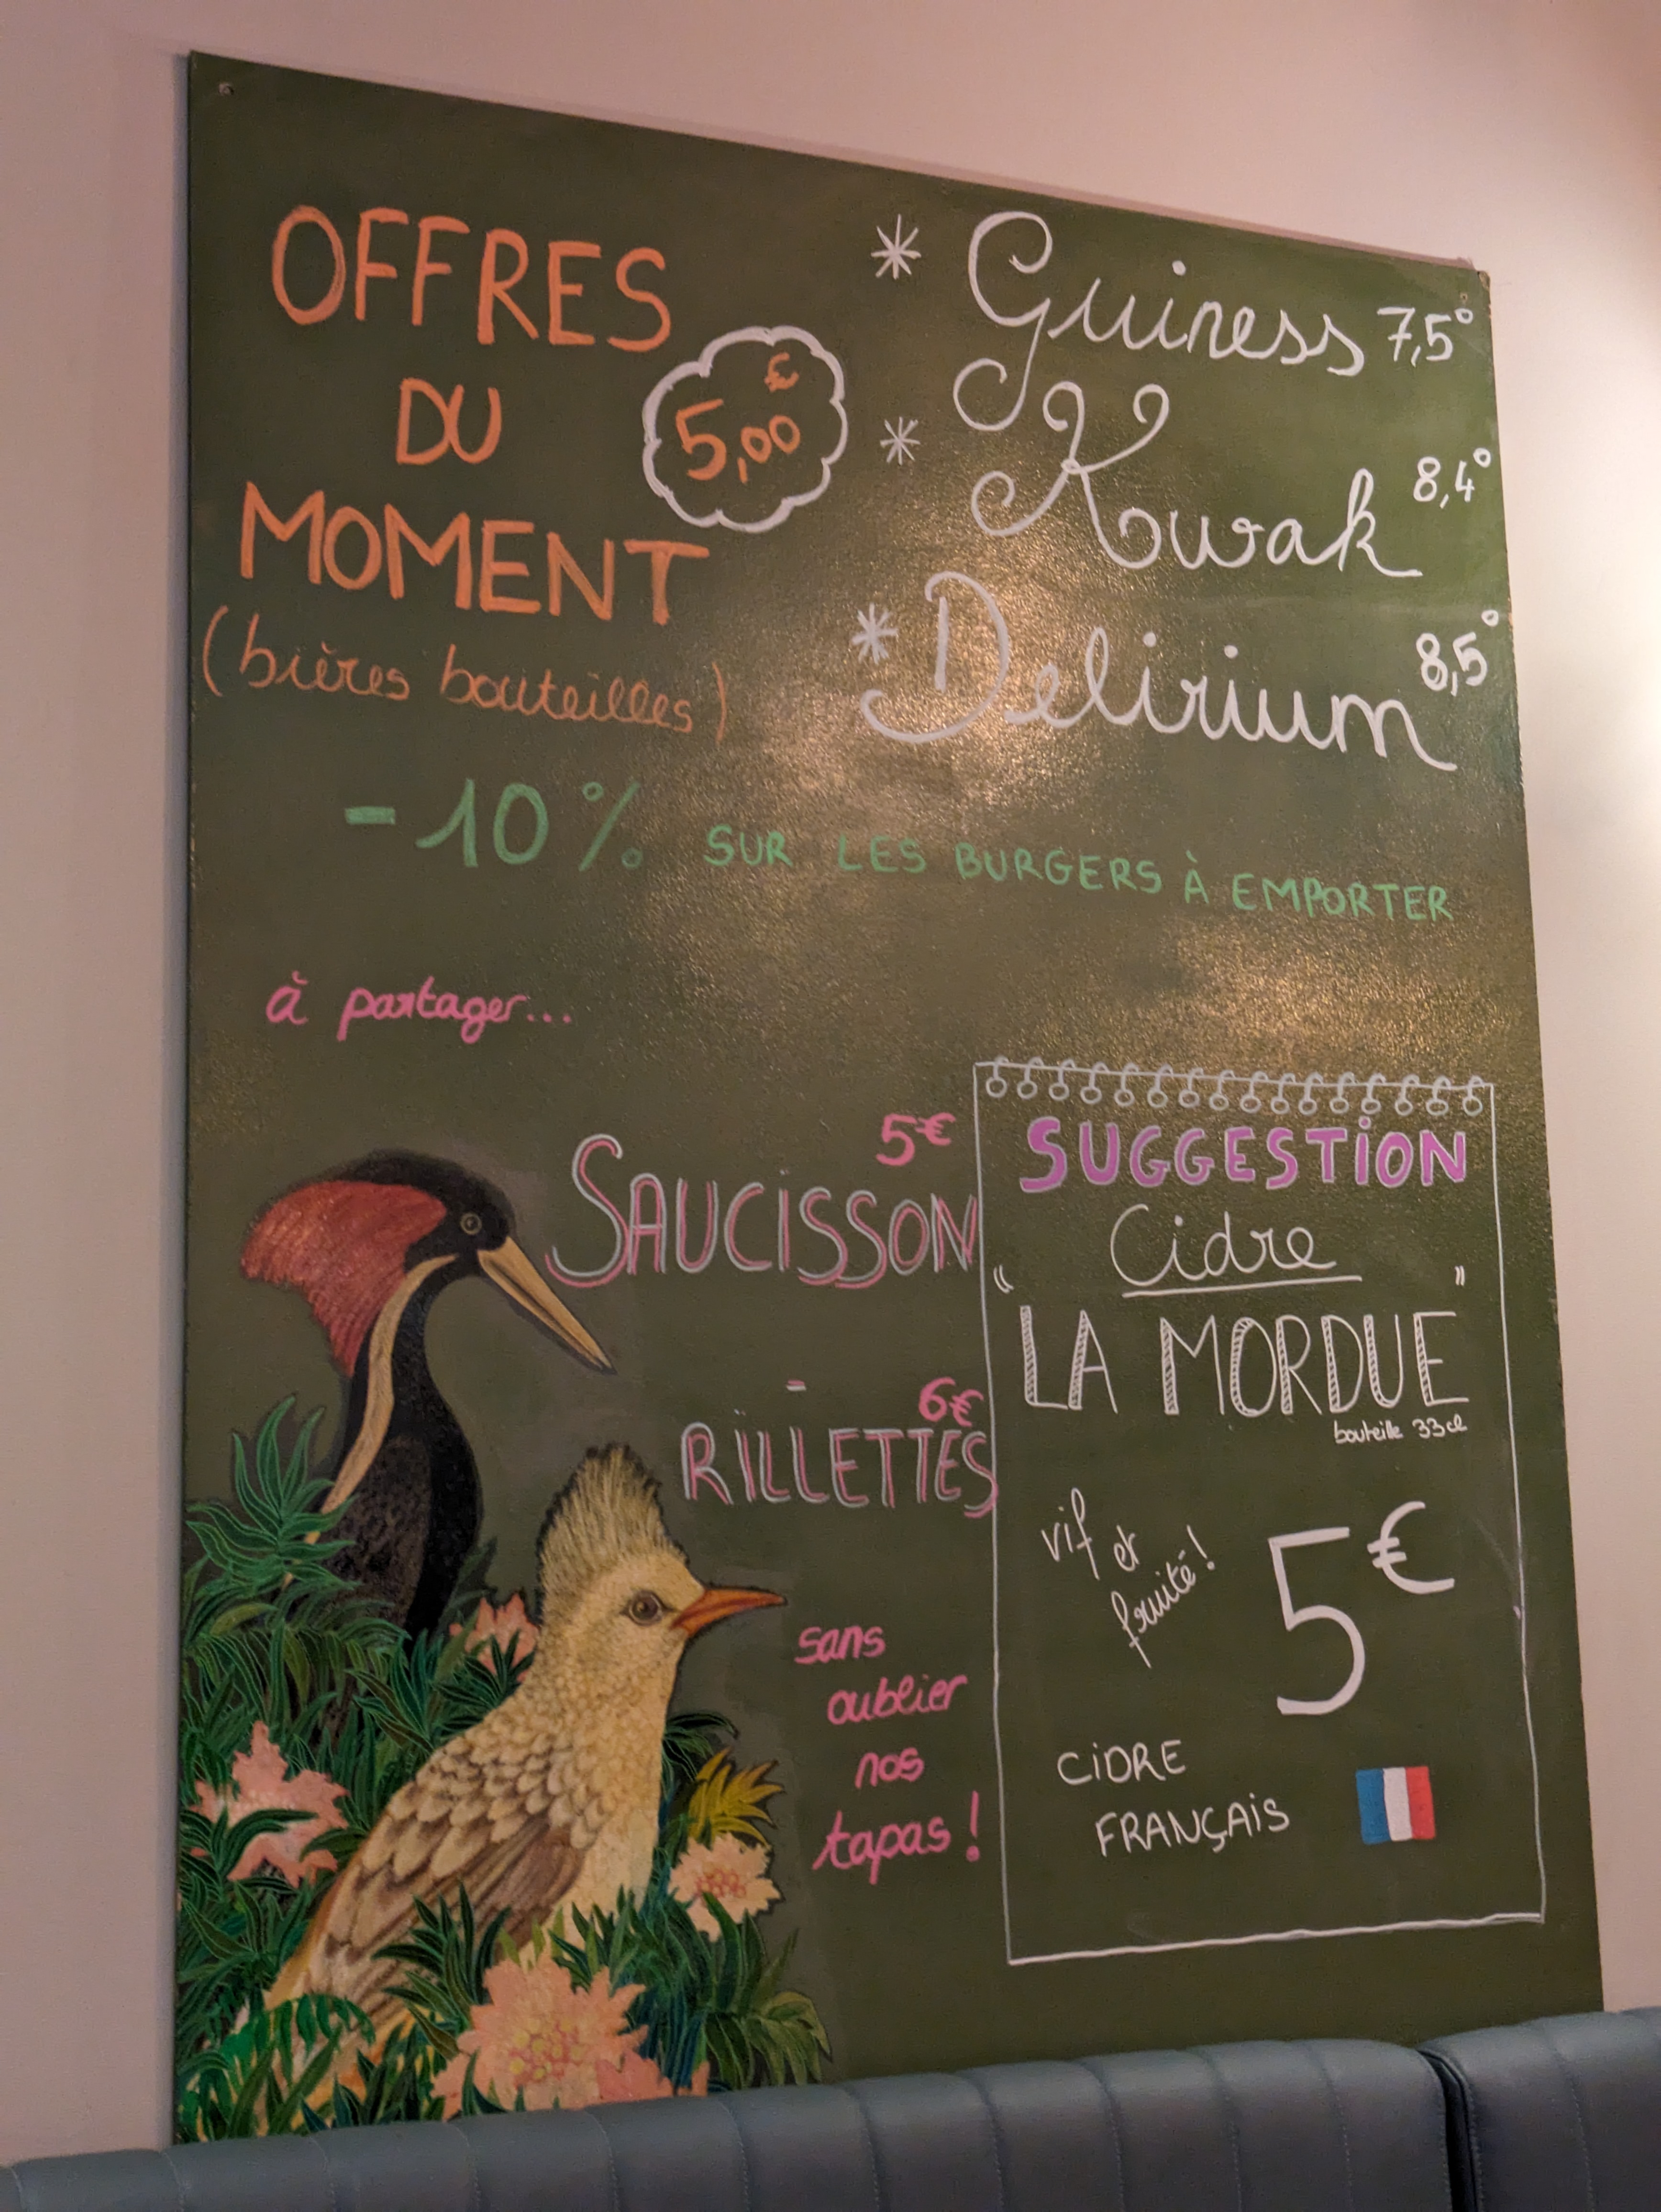 OFFRES
DU
MOMENT
(bières bouteilles)
5,00 €
* Guiness 7,5°
* Kwak 8,4°
* Delirium 8,5°
-10% SUR LES BURGERS À EMPORTER
à partager...
SAUCISSON 5€
-
RILLETTES 6€
sans
oublier
nos
tapas !
SUGGESTION
Cidre
"LA MORDUE"
bouteille 33cl
vif et
fruité !
5€
CIDRE
FRANÇAIS